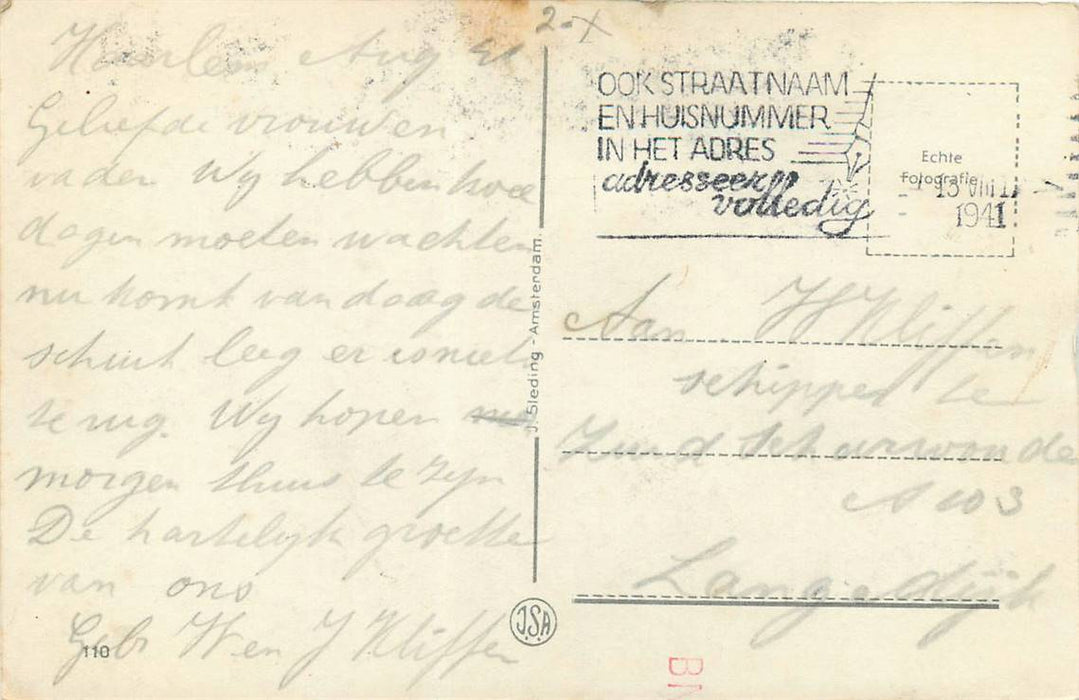 2-x
Haarlem Aug 41
Geliefde vrouw en
vader Wy hebben twee
dagen moeten wachten
nu komt vandaag de
schuit leeg en
terug. Wy hopen
morgen thuis te zyn
De hartelyk groette
van ons
Gebr W en J Kliffen
110
J. Sleding - Amsterdam
J.S.A
OOK STRAATNAAM
EN HUISNUMMER
IN HET ADRES
adresseer
volledig
Echte
Fotografie
13 VIII
1941
Aan
Kliffen
schipper te
Zuid Scharwoude
A 103
Langedijk